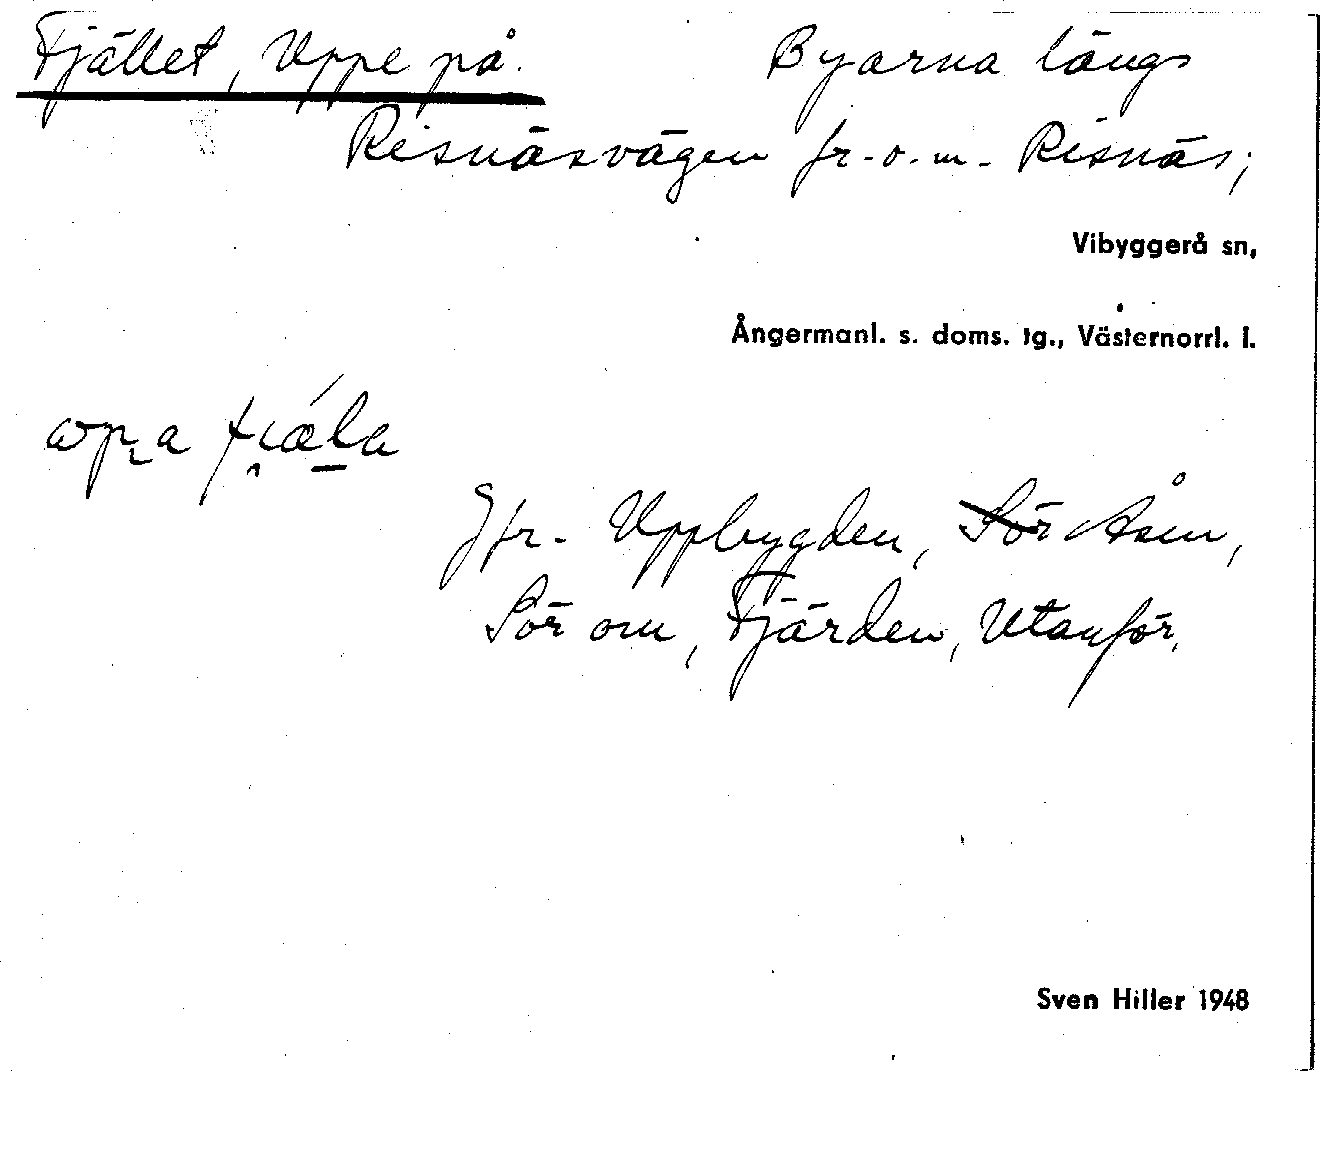 Fjället, Uppe på. Byarna längs
Risnäsvägen fr.o.m. Risnäs;
Vibyggerå sn,
Ångermanl. s. doms. tg., Västernorrl. l.
Jfr. Uppbygden, Sör Åsm,
Sör om, Fjärden, Utanför.
Sven Hiller 1948